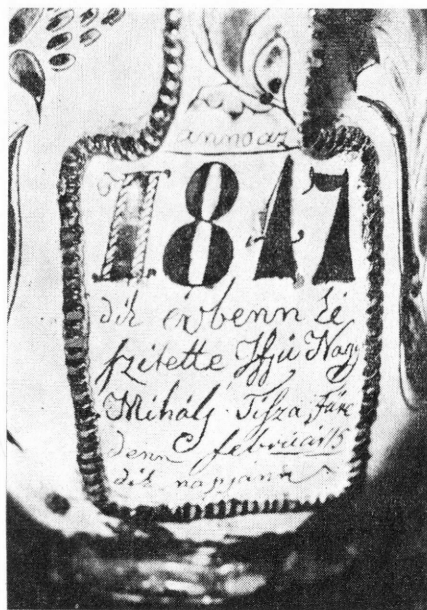 anno az
1847
dik évbenn ké
szitette Ifjú Nagy
Mihálj Tisza Füre
denn februáis 15
dik napjánn